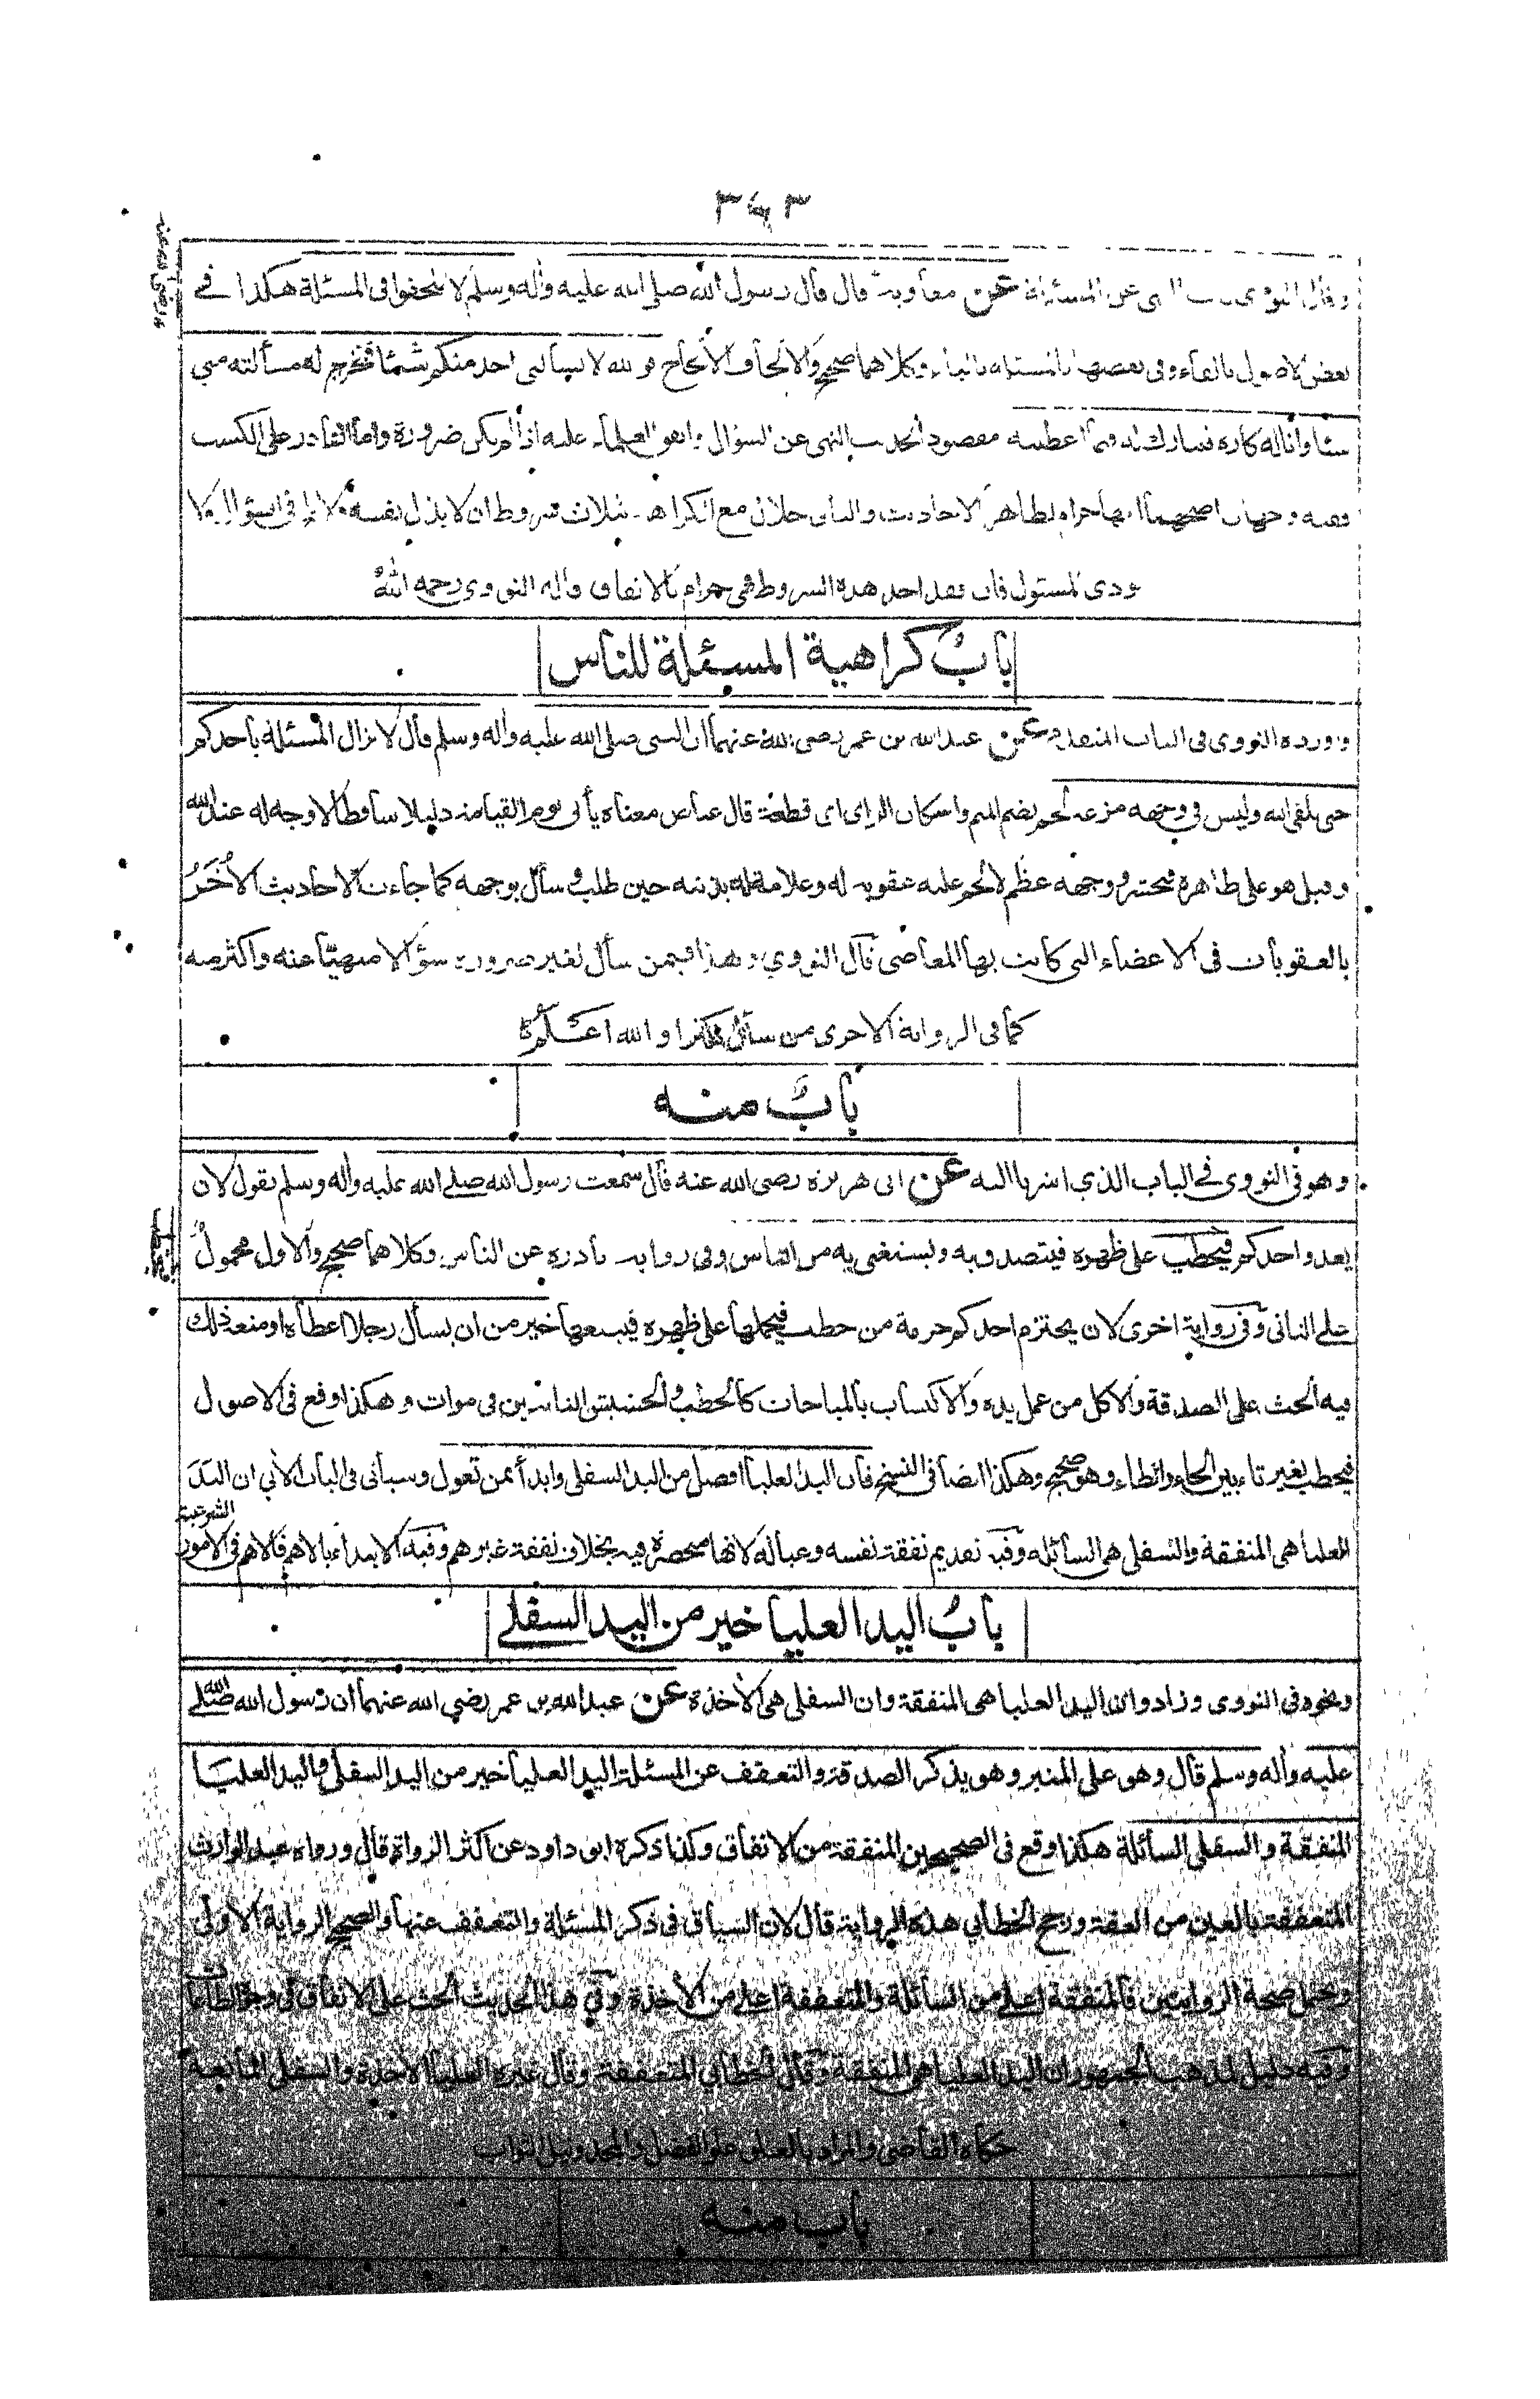 ٣٤٣
وقال النووي باب النهي عن المسئلة عن معاوية قال قال رسول الله صلى الله عليه وأله وسلم لا تلحفوا فى المسئلة هكذا في
بعض الاصول بالفاء وفى بعضها بالمسئلة بالباء وكلاهما صحيح والالحاف الالحاح فو الله لا يسألنى احد منكم شيئا فتخرج له مسألته منى
شيئا وأنا له كاره فيبارك له فيما اعطيته مقصود الحديث النهى عن السؤال واتفق العلماء عليه اذا لم يكن ضرورة واما القادر على الكسب
ففيه وجهان اصحهما انها حرام لظاهر الاحاديث والثانى حلال مع الكراهة بثلاث شروط ان لا يذل نفسه ولا يلح فى السؤال ولا
يؤذى المسئول فان فقد احد هذه الشروط فهى حرام بالاتفاق قاله النووى رحمه الله
باب كراهية المسئلة للناس
واورده النووى فى الباب المتقدم عن عبد الله بن عمر رضى الله عنهما ان النبى صلى الله عليه وأله وسلم قال لا تزال المسئلة بأحدكم
حتى يلقى الله وليس فى وجهه مزعة لحم بضم الميم واسكان الزاى اى قطعة قال عياض معناه يأتى يوم القيامة ذليلا ساقطا لا وجه له عند الله
وقيل هو على ظاهره فيحشر ووجهه عظم لا لحم عليه عقوبة له وعلامة له بذنبه حين طلب وسأل بوجهه كما جاءت الاحاديث الأخر
بالعقوبات فى الاعضاء التى كانت بها المعاصى قال النووي وهذا فيمن سأل لغير ضرورة سؤالا منهيا عنه واكثر منه
كما فى الرواية الاخرى من سأل تكثرا والله اعلم
باب منه
وهو فى النووى في الباب الذي اشرنا اليه عن ابى هريرة رضى الله عنه قال سمعت رسول الله صلے الله عليه وأله وسلم يقول لان
يغدو احدكم فيحطب على ظهره فيتصدق به ويستغنى به من الناس وفى رواية نادرة عن الناس وكلاهما صحيح والاول محمول
على الثانى وفى رواية اخرى لان يحتزم احدكم حزمة من حطب فيحملها على ظهره فيبيعها خير من ان يسأل رجلا اعطاه او منعه ذلك
فيه الحث على الصدقة والاكل من عمل يده والاكتساب بالمباحات كالحطب والحشيش النابتين فى موات وهكذا وقع فى الاصول
فيحطب بغير تاء بين الحاء والطاء وهو صحيح وهكذا ايضا فى النسخ فان اليد العليا افضل من اليد السفلى وابدأ بمن تعول وسيأتى فى الباب الأتي ان اليد
العليا هى المنفقة والسفلى هى السائلة وفيه تقديم نفقة نفسه وعياله لانها منحصرة فيه بخلاف نفقة غيرهم وفيه الابتداء بالاهم فالاهم فى الامور الشرعية
باب اليد العليا خير من اليد السفلے
ونحوه فى النووى وزاد وان اليد العليا هى المنفقة وان السفلى هى الأخذة عن عبد الله بن عمر رضي الله عنهما ان رسول الله صلے الله
عليه وأله وسلم قال وهو على المنبر وهو يذكر الصدقة والتعفف عن المسئلة اليد العليا خير من اليد السفلى واليد العليا
المنفقة والسفلى السائلة هكذا وقع فى الصحيحين المنفقة من الانفاق وكذا ذكره ابو داود عن اكثر الرواة قال ورواه عبد الوارث
المتعففة بالعين من العفة ورجح الخطابي هذه الرواية قال لان السياق فى ذكر المسئلة والتعفف عنها والصحيح الرواية الاولى
ويحتمل صحة الروايتين فالمنفقة اعلى من السائلة والمتعففة اعلى من الأخذة وفي هذا الحديث الحث على الانفاق فى وجوه الطاعات
وفيه دليل لمذهب الجمهور ان اليد العليا هى المنفقة وقال الخطابي المتعففة وقال غيره العليا الأخذة والسفلى المانعة
حكاه القاضى والمراد بالعلو علو الفضل والمجد ونيل الثواب
باب منه